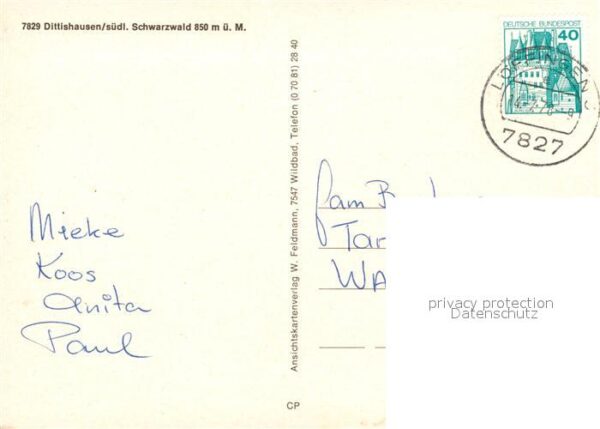 7829 Dittishausen/südl. Schwarzwald 850 m ü. M.
DEUTSCHE BUNDESPOST
40
LÖFFINGEN
7827
Mieke
Koos
Anita
Paul
Ansichtskartenverlag W. Feldmann, 7547 Wildbad, Telefon (0 70 81) 28 40
Fam
Tar
WA
privacy protection
Datenschutz
CP